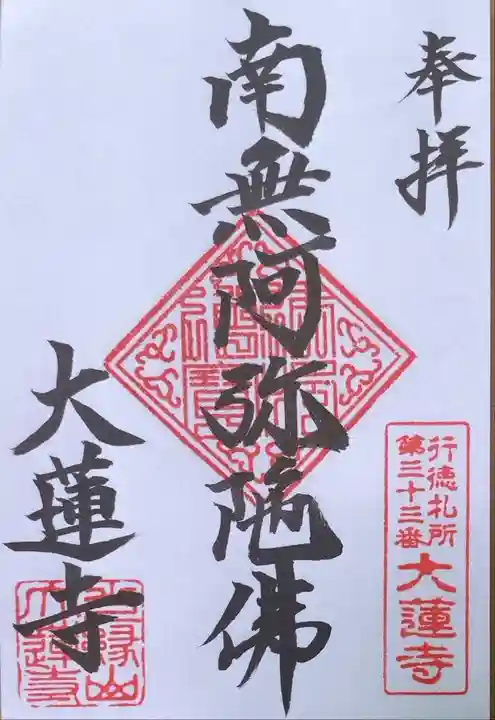 奉拝
行徳札所
第三十三番
大蓮寺
南無阿弥陀佛
大蓮寺